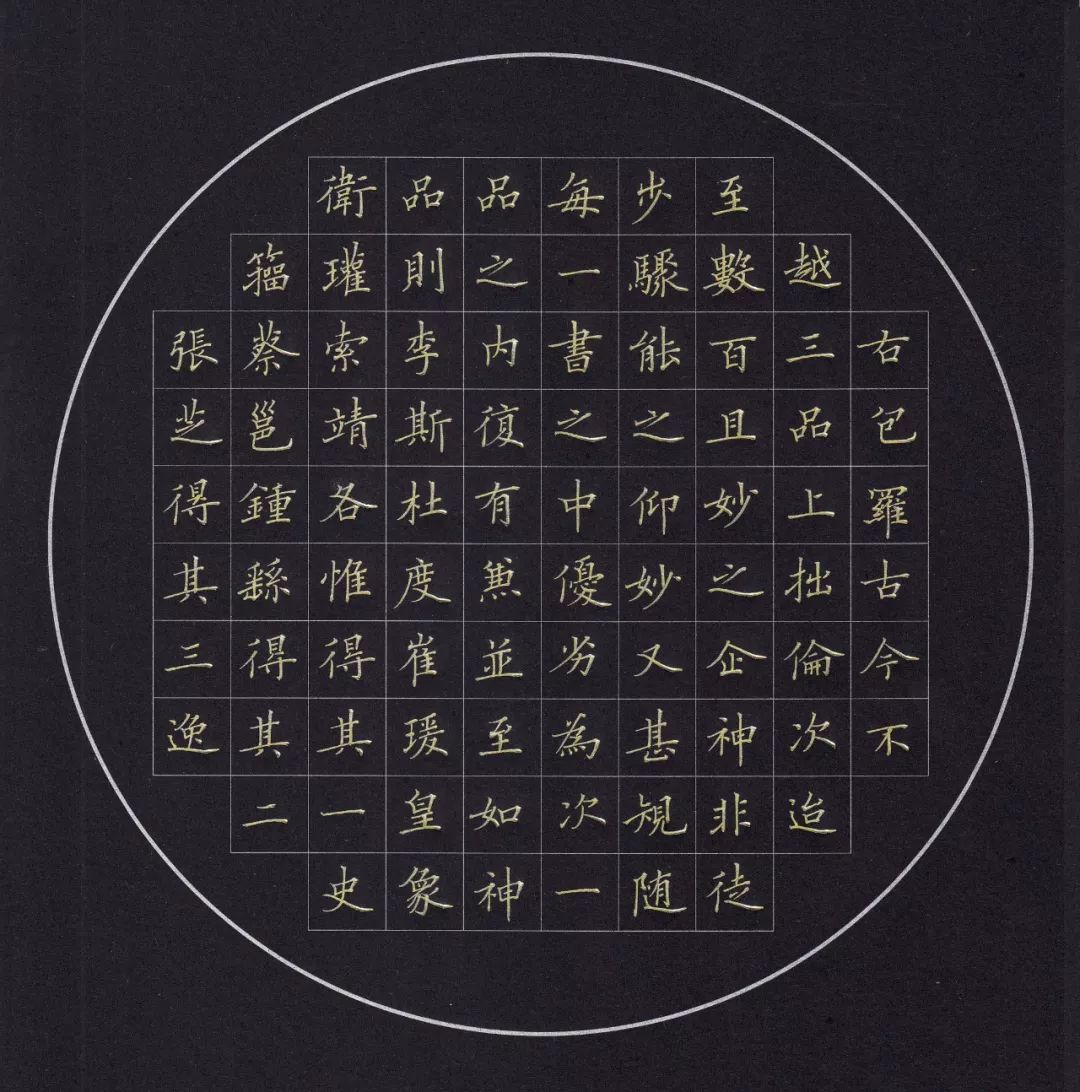 右包羅古今不
越三品上拙倫次迨
至數百且妙之企神非徒
步驟能之仰妙又甚規随
每一書之中優劣為次一
品之內復有兼並至如神
品則李斯杜度崔瑗皇象
衛瓘索靖各惟得其一史
籀蔡邕鍾繇得其二
張芝得其三逸